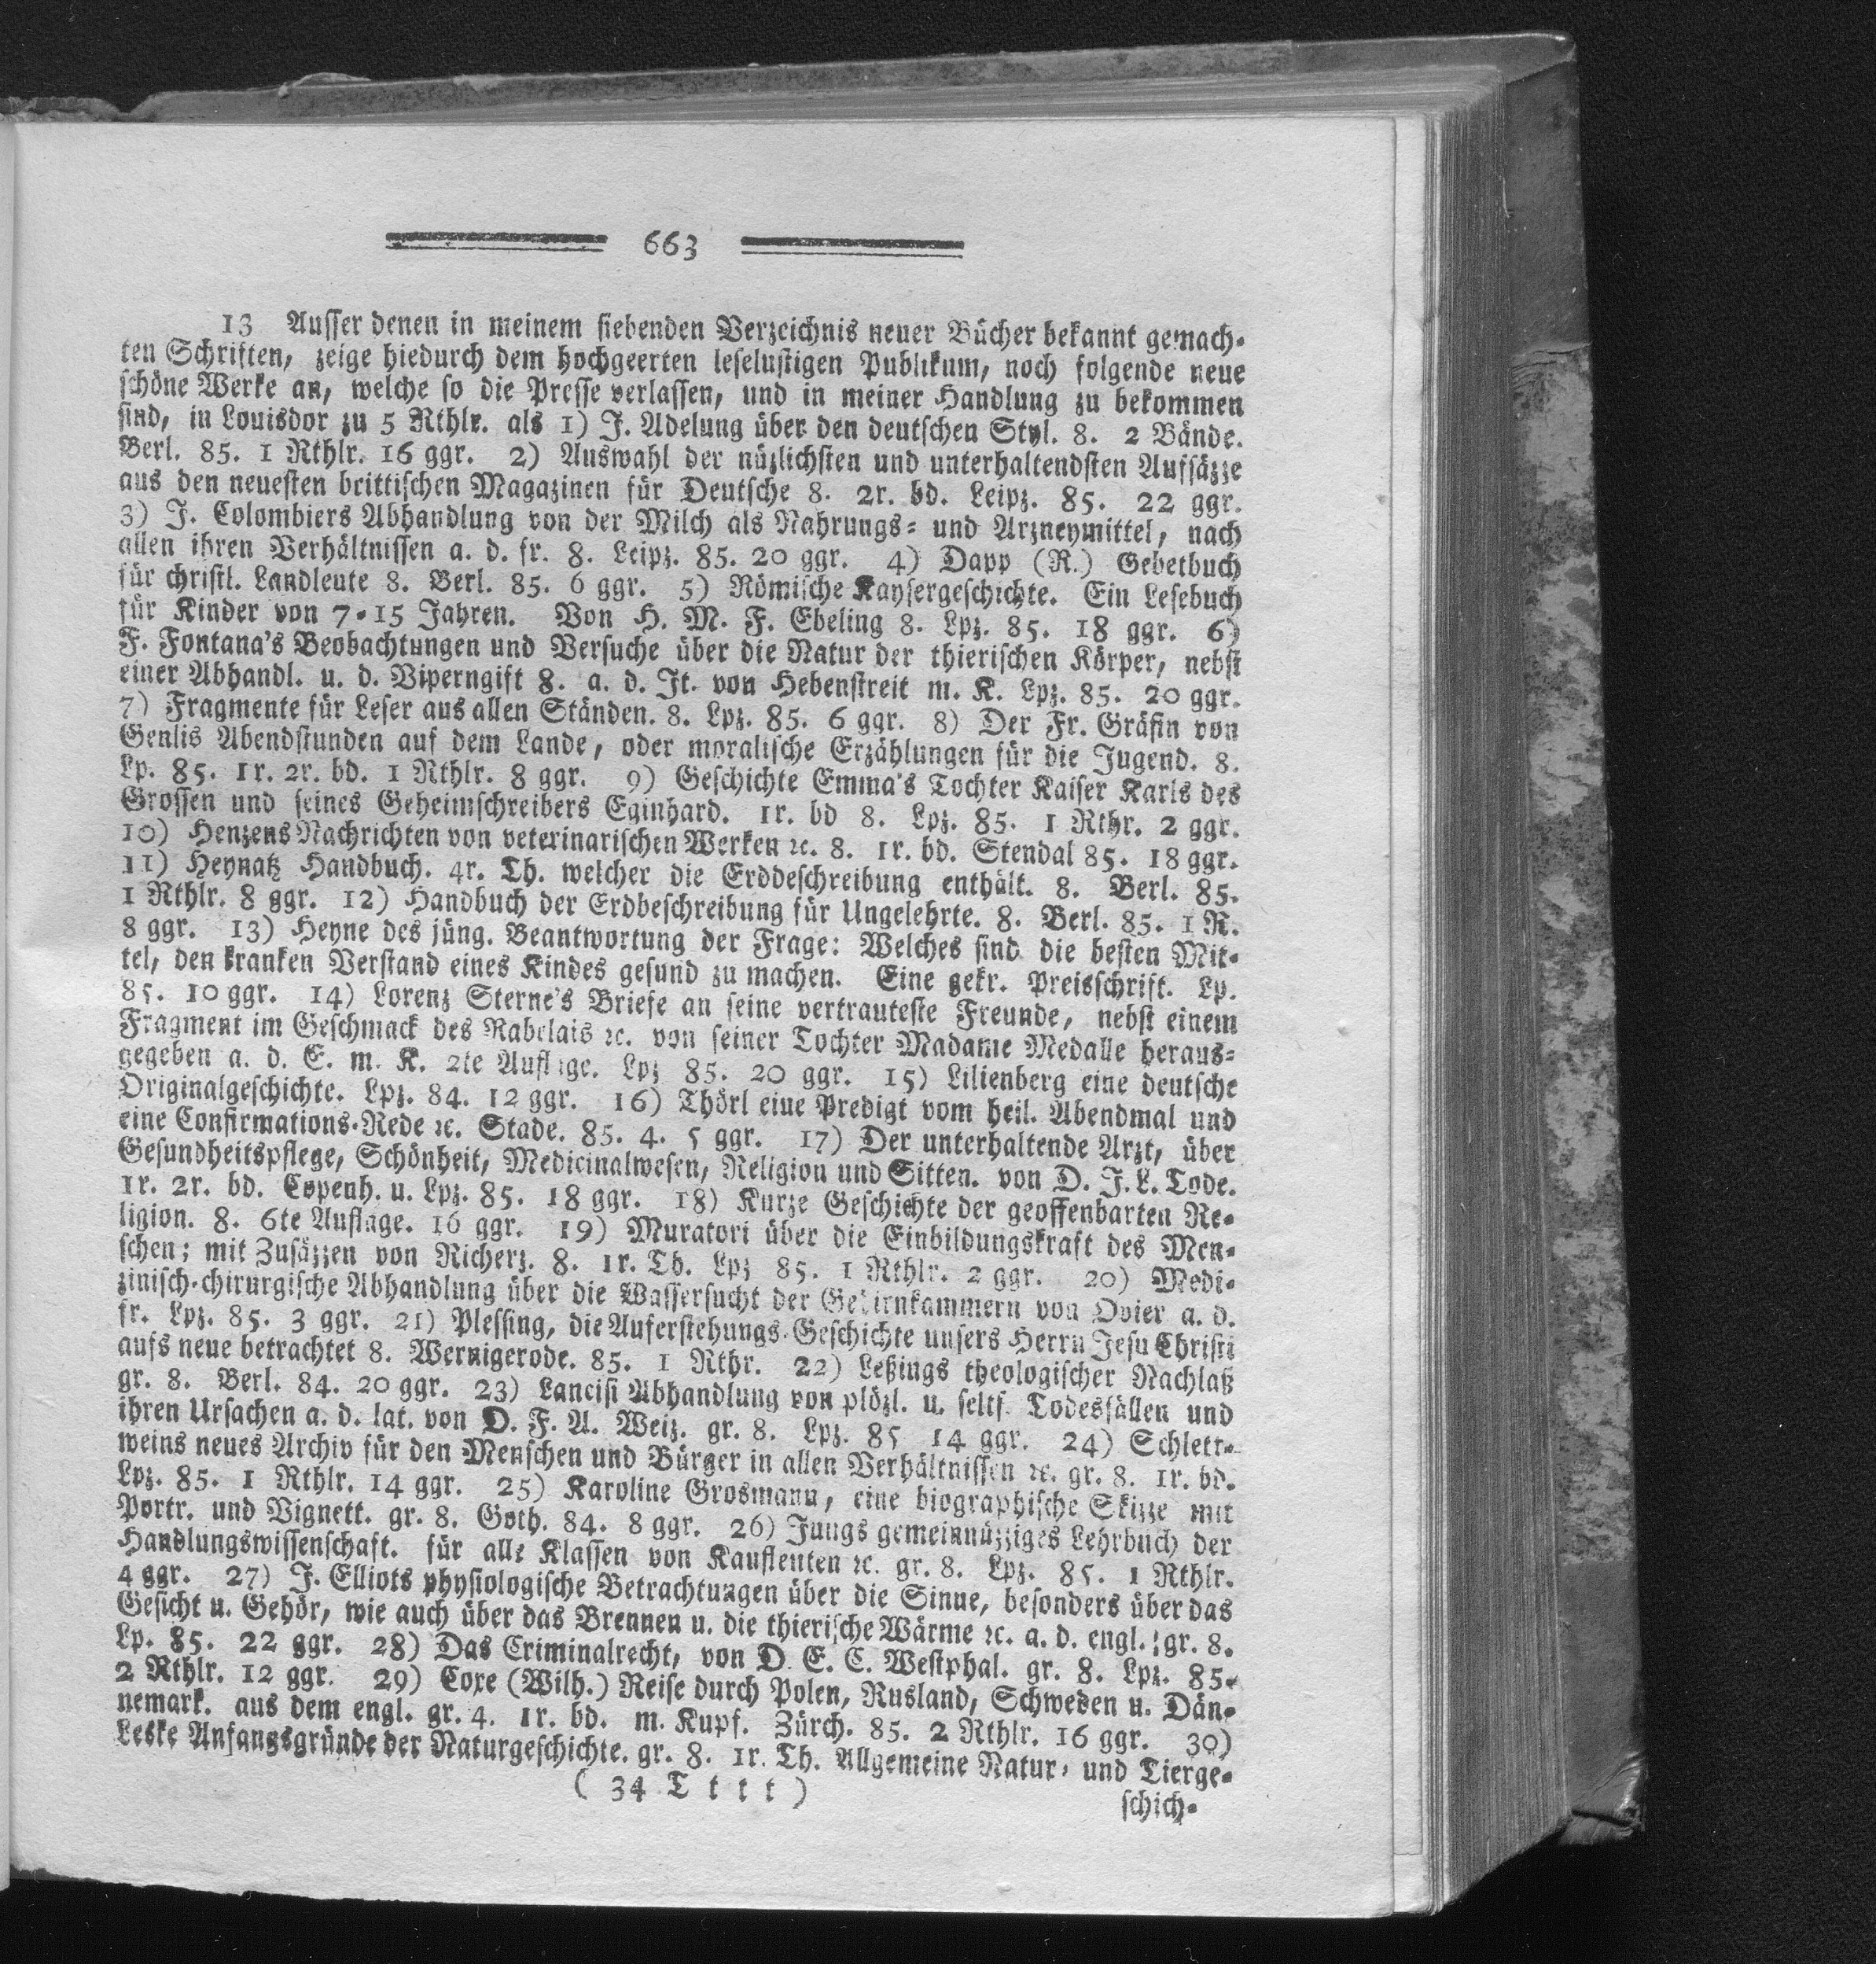 663
13 Ausser denen in meinem siebenden Verzeichnis neuer Bücher bekannt gemach-
ten Schriften, zeige hiedurch dem hochgeerten leselustigen Publikum, noch folgende neue
schöne Werke an, welche so die Presse verlassen, und in meiner Handlung zu bekommen
sind, in Louisdor zu 5 Rthlr. als 1) J. Adelung über den deutschen Styl. 8. 2 Bände.
Berl. 85. 1 Rthlr. 16 ggr. 2) Auswahl der nüzlichsten und unterhaltendsten Aufsäzze
aus den neuesten brittischen Magazinen für Deutsche 8. 2r. bd. Leipz. 85. 22 ggr.
3) J. Colombiers Abhandlung von der Milch als Nahrungs- und Arzneymittel, nach
allen ihren Verhältnissen a. d. fr. 8. Leipz. 85. 20 ggr. 4) Dapp (R.) Gebetbuch
für christl. Landleute 8. Berl. 85. 6 ggr. 5) Römische Kaysergeschichte. Ein Lesebuch
für Kinder von 7-15 Jahren. Von H. M. F. Ebeling 8. Lpz. 85. 18 ggr. 6)
F. Fontana's Beobachtungen und Versuche über die Natur der thierischen Körper, nebst
einer Abhandl. u. d. Viperngift 8. a. d. It. von Hebenstreit m. K. Lpz. 85. 20 ggr.
7) Fragmente für Leser aus allen Ständen. 8. Lpz. 85. 6 ggr. 8) Der Fr. Gräfin von
Genlis Abendstunden auf dem Lande, oder moralische Erzählungen für die Jugend. 8.
Lp. 85. 1r. 2r. bd. 1 Rthlr. 8 ggr. 9) Geschichte Emma's Tochter Kaiser Karls des
Grossen und seines Geheimschreibers Eginhard. 1r. bd 8. Lpz. 85. 1 Rthr. 2 ggr.
10) Henzens Nachrichten von veterinarischen Werken ꝛc. 8. 1r. bd. Stendal 85. 18 ggr.
11) Heynatz Handbuch. 4r. Th. welcher die Erddeschreibung enthält. 8. Berl. 85.
1 Rthlr. 8 ggr. 12) Handbuch der Erdbeschreibung für Ungelehrte. 8. Berl. 85. 1 R.
8 ggr. 13) Heyne des jüng. Beantwortung der Frage: Welches sind die besten Mit-
tel, den kranken Verstand eines Kindes gesund zu machen. Eine gekr. Preisschrift. Lp.
85. 10 ggr. 14) Lorenz Sterne's Briefe an seine vertrauteste Freunde, nebst einem
Fragment im Geschmack des Rabelais ꝛc. von seiner Tochter Madame Medalle heraus-
gegeben a. d. E. m. K. 2te Auflage. Lpz 85. 20 ggr. 15) Lilienberg eine deutsche
Originalgeschichte. Lpz. 84. 12 ggr. 16) Thörl eiue Predigt vom heil. Abendmal und
eine Confirmations-Rede ꝛc. Stade. 85. 4. 5 ggr. 17) Der unterhaltende Arzt, über
Gesundheitspflege, Schönheit, Medicinalwesen, Religion und Sitten. von D. J. L. Tode.
1r. 2r. bd. Copenh. u. Lpz. 85. 18 ggr. 18) Kurze Geschichte der geoffenbarten Re-
ligion. 8. 6te Auflage. 16 ggr. 19) Muratori über die Einbildungskraft des Men-
schen; mit Zusäzzen von Richerz. 8. 1r. Th. Lpz 85. 1 Rthlr. 2 ggr. 20) Medi-
zinisch-chirurgische Abhandlung über die Wassersucht der Gehirnkammern von Odier a. d.
fr. Lpz. 85. 3 ggr. 21) Plessing, die Auferstehungs-Geschichte unsers Herrn Jesu Christi
aufs neue betrachtet 8. Wernigerode. 85. 1 Rthr. 22) Leßings theologischer Nachlaß
gr. 8. Berl. 84. 20 ggr. 23) Lancisi Abhandlung von plözl. u. seltf. Todesfällen und
ihren Ursachen a. d. lat. von D. F. A. Weiz. gr. 8. Lpz. 85 14 ggr. 24) Schlett-
weins neues Archiv für den Menschen und Bürger in allen Verhältnissen ꝛc. gr. 8. 1r. bd.
Lpz. 85. 1 Rthlr. 14 ggr. 25) Karoline Grosmann, eine biographische Skizze mit
Portr. und Vignett. gr. 8. Goth. 84. 8 ggr. 26) Jungs gemeinnüzziges Lehrbuch der
Handlungswissenschaft. für alle Klassen von Kauflenten ꝛc. gr. 8. Lpz. 85. 1 Rthlr.
4 ggr. 27) J. Elliots physiologische Betrachtungen über die Sinne, besonders über das
Gesicht u. Gehör, wie auch über das Brennen u. die thierische Wärme ꝛc. a. d. engl. gr. 8.
Lp. 85. 22 ggr. 28) Das Criminalrecht, von D. E. C. Westphal. gr. 8. Lpz. 85.
2 Rthlr. 12 ggr. 29) Coxe (Wilh.) Reise durch Polen, Rusland, Schweden u. Dän-
nemark. aus dem engl. gr. 4. 1r. bd. m. Kupf. Zürch. 85. 2 Rthlr. 16 ggr. 30)
Leske Anfangsgründe der Naturgeschichte. gr. 8. 1r. Th. Allgemeine Natur- und Tierge-
( 34 T t t t )
schich-